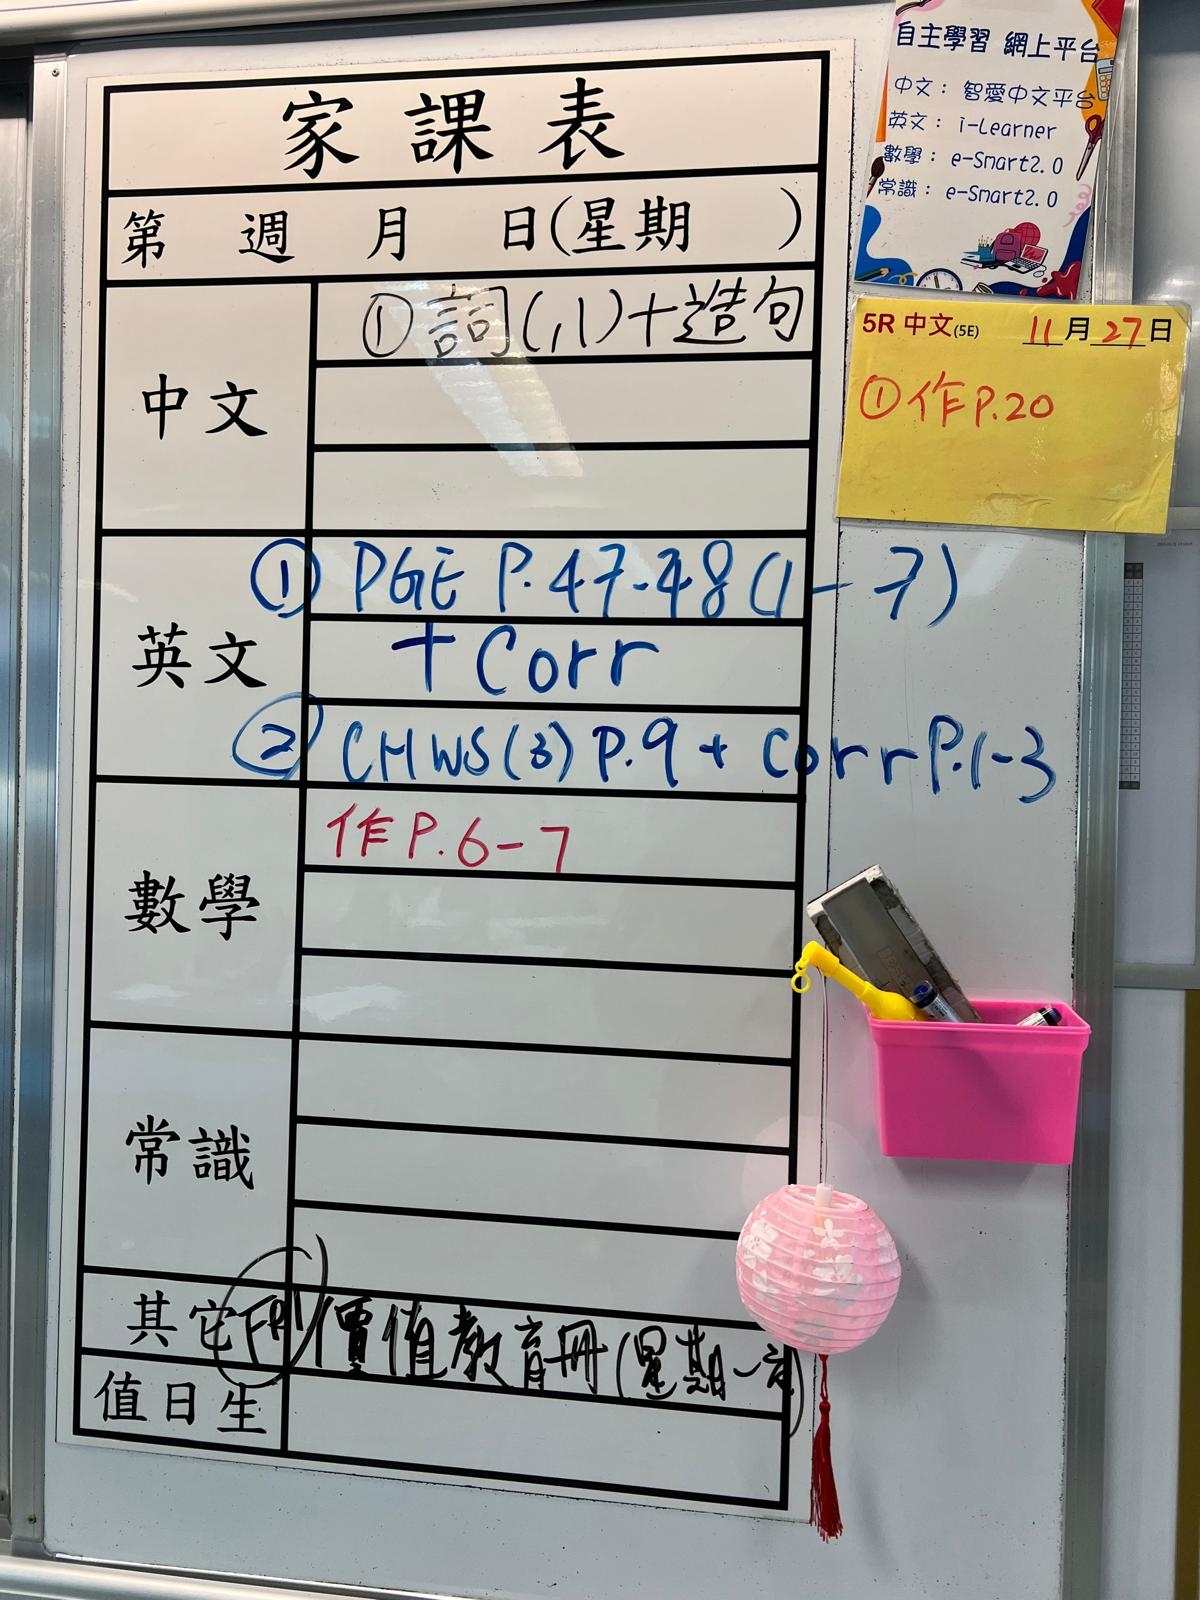 家課表
第 週 月 日(星期 )
中文
①詞(,八)+造句
英文
① PGE P.47-48(1-7)
+ Corr
② CHWS(3) P.9 + Corr P.1-3
數學
作P.6-7
常識
其它
FRI 價值教育冊(星期一
值日生
自主學習 網上平台
中文： 智愛中文平台
英文： i-Learner
數學： e-Smart2.0
常識： e-Smart2.0
5R 中文(5E) 11月27日
①作P.20